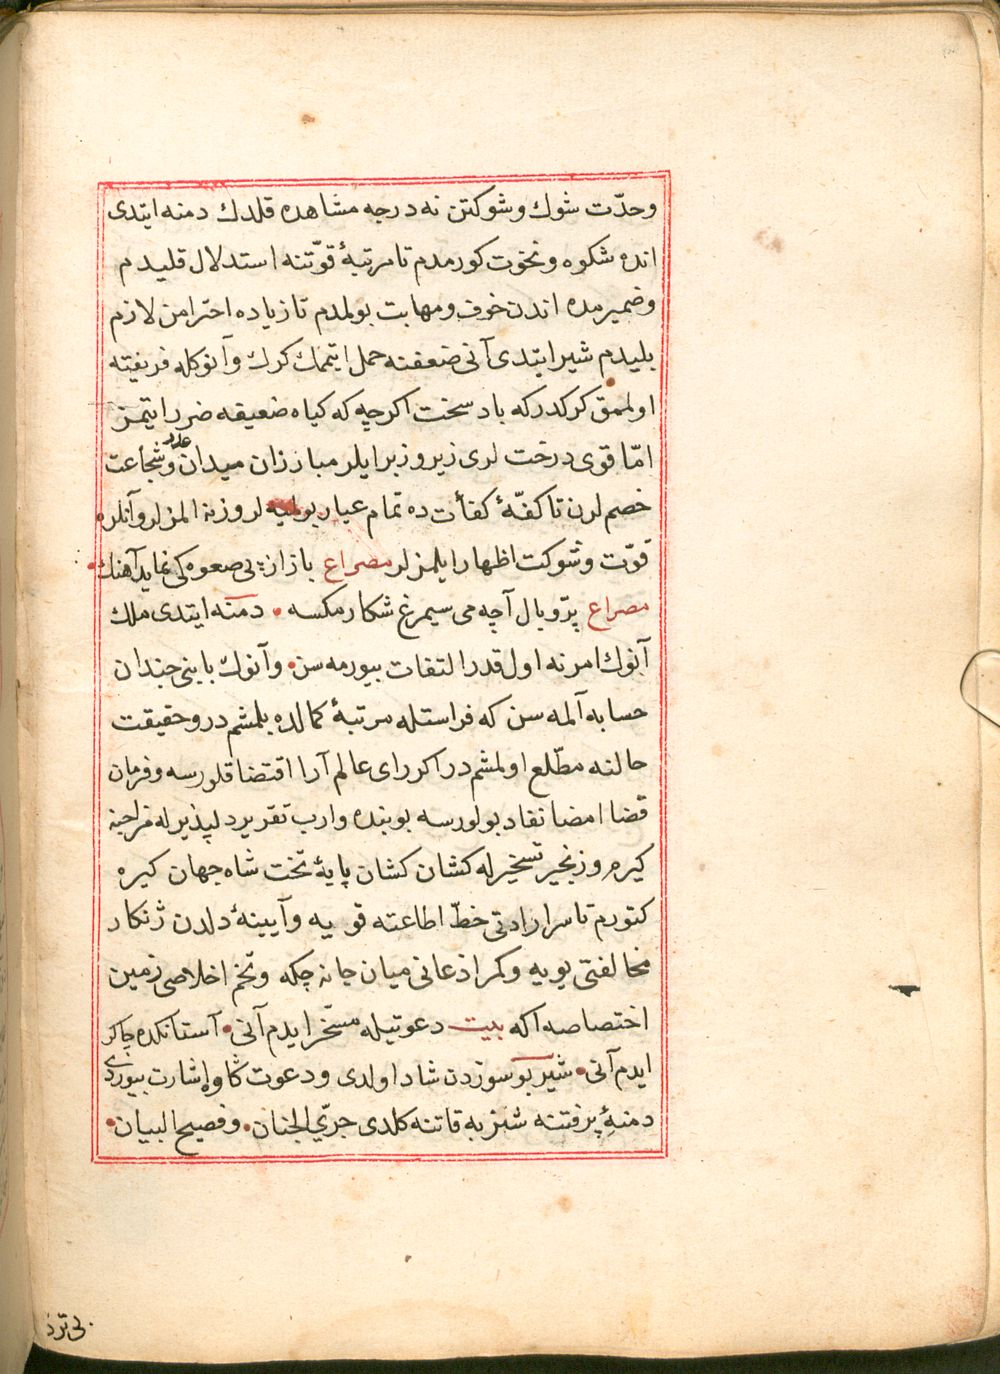 وحدّت شوك وشوكتن نه درجه مشاهده قلدك دمنه ایتدی
انده شكوه ونخوت كورمدم تا مرتبهٔ قوّتنه استدلال قلیدم
وضمیرمده اندن خوف ومهابت بولمدم تا زیاده احترامن لازم
بلیدم شیر ایتدی آنی ضعفنه حمل ایتمك كرك وآنوكله فریفته
اولمق كركدر كه باد سخت اكرچه كه كیاه ضعیفه ضرر ایتمز
امّا قوی درخت لری زیر وزبر ایلر مبارزان میدان وشجاعت
خصم لرن تا كفّهٔ كفأت ده تمام عیار بولمیه لر وزنه المزلر وآنلره
قوّت وشوكت اظهار ایلمزلر مصراع باز از پی صعوه كی نماید آهنك
مصراع پرّ وبال آچه می سیمرغ شكار مكسه • دمنه ایتدی ملك
آنوك امرنه اول قدر التفات بیورمه سن • وآنوك بابنی چندان
حسابه آلمه سن كه فراستله مرتبهٔ كمالده بلمشم در وحقیقت
حالنه مطّلع اولمشم در اكر رای عالم آرا اقتضا قلورسه وفرمان
قضا امضا نفاد بولورسه بو بنده وارب تقریر دلپذیرله مزاجنه
كیره م وزنجیر تسخیرله كشان كشان پایهٔ تخت شاه جهان كیره
كتورم تا سر ارادتی خطّ اطاعته قویه وآیینهٔ دلدن ژنكار
مخالفتی یویه وكمر اذعانی میان جانه چكه وتخم اخلاصی زمین
اختصاصه اكه بیت دعوتیله مسخّر ایدم آنی • آستانكده چاكر
ایدم آنی • شیر بو سوزدن شاد اولدی ودعوت كاوه اشارت بیوردی
دمنهٔ پر فتنه شنزبه قاتنه كلدی جریّ الجنان • وفصیح البیان •
بی تردد